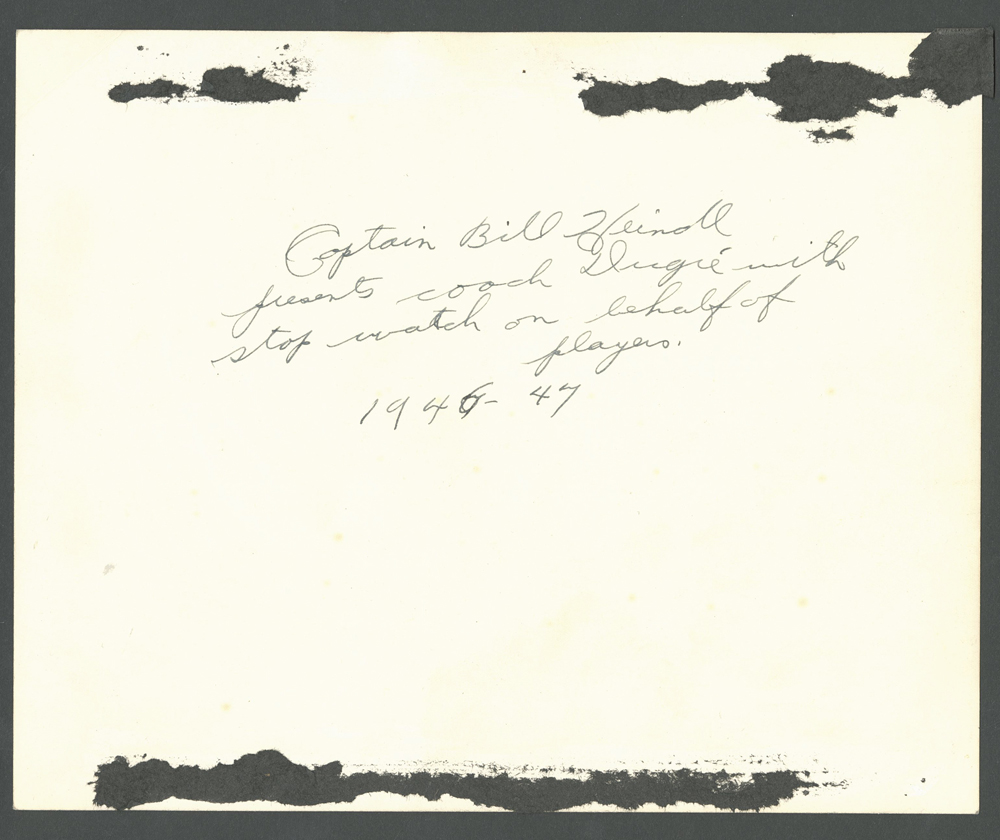 Captain Bill Heindl
presents coach Dugie with
stop watch on behalf of
players.
1946-47